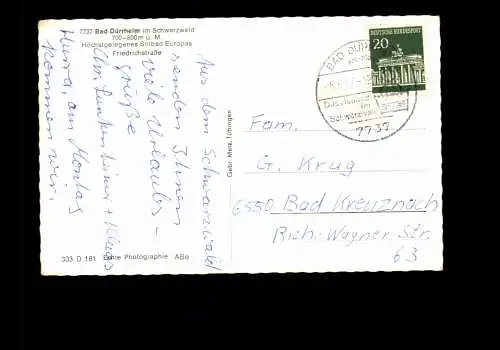 7737 Bad Dürrheim im Schwarzwald
700–800m ü. M.
Höchstgelegenes Solbad Europas
Friedrichstraße
Aus dem Schwarzwald
senden Ihnen
viele Urlaubs-
grüße
Ihre + Klaus
Hurra, am Montag
kommen wir.
333 D 181 Echte Photographie ABe
Gebr. Metz, Tübingen
BAD DÜRRHEIM
im
Schwarzwald
7737
DEUTSCHE BUNDESPOST
20
Fam.
G. Krug
6550 Bad Kreuznach
Rich.-Wagner Str.
63